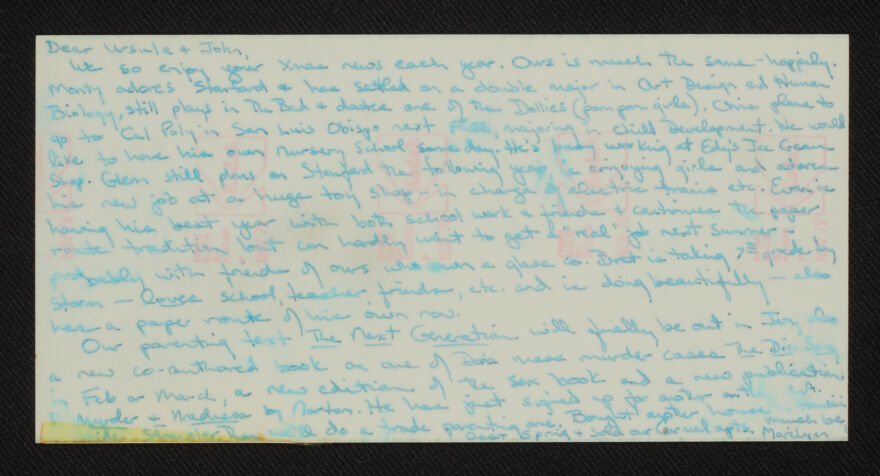 Dear Ursula + John,
We so enjoy your Xmas news each year. Ours is much the same - happily.
Monty adores Stanford + has settled on a double major in Art Design and Human
Biology, still plays in The Band + dance one of the Dollies (pompon girls). Chris plans to
go to Cal Poly in San Luis Obispo next fall, majoring in Child Development. He would
like to have his own nursery school some day. He's busy working at Edy's Ice Cream
Shop. Glenn still plans on Stanford the following year, is enjoying girls and adores
his new job at a huge toy shop - in charge of electric trains etc. Evan is
having his best year with both school work + friends + continues the paper
route tradition but can hardly wait to get a "real" job next Summer -
probably with friends of ours who own a glass co. Bret is taking 7th grade by
storm - loves school, teacher, friends, etc. and is doing beautifully - also
has a paper route of his own now.
Our parenting text The Next Generation will finally be out in Jan, also
a new co-authored book on one of Don's mass murder cases The Die Song
in Feb or March, a new edition of the sex book and a new publication
Murder + Madness by Norton. He has just signed up for another
we'll do a trade parenting one. Bought another house
last Spring + sold our Carmel apts. much love,
Marilyn